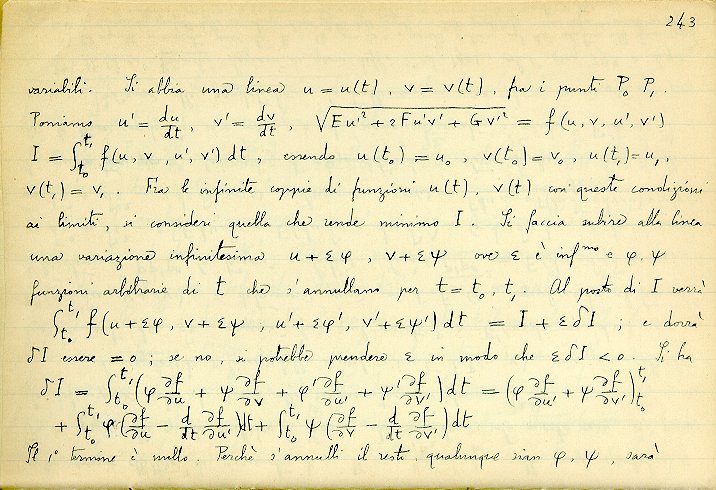 243
variabili. Si abbia una linea u = u(t), v = v(t), fra i punti P₀ P₁.
Poniamo u' = du/dt, v' = dv/dt, √(Eu'² + 2Fu'v' + Gv'²) = f(u, v, u', v')
I = ∫_{t₀}^{t₁} f(u, v, u', v') dt, essendo u(t₀) = u₀, v(t₀) = v₀, u(t₁) = u₁,
v(t₁) = v₁. Fra le infinite coppie di funzioni u(t), v(t) con queste condizioni
ai limiti, si consideri quella che rende minimo I. Si faccia subire alla linea
una variazione infinitesima u + εφ, v + εψ ove ε è inf^mo e φ, ψ
funzioni arbitrarie di t che s'annullano per t = t₀, t₁. Al posto di I verrà
∫_{t₀}^{t₁} f(u + εφ, v + εψ, u' + εφ', v' + εψ') dt = I + εδI ; e dovrà
δI essere = 0 ; se no, si potrebbe prendere ε in modo che εδI < 0. Si ha
δI = ∫_{t₀}^{t₁} (φ ∂f/∂u + ψ ∂f/∂v + φ' ∂f/∂u' + ψ' ∂f/∂v') dt = (φ ∂f/∂u' + ψ ∂f/∂v')_{t₀}^{t₁}
+ ∫_{t₀}^{t₁} φ (∂f/∂u − d/dt ∂f/∂u') dt + ∫_{t₀}^{t₁} ψ (∂f/∂v − d/dt ∂f/∂v') dt
Il 1° termine è nullo. Perchè s'annulli il resto, qualunque sian φ, ψ, sarà